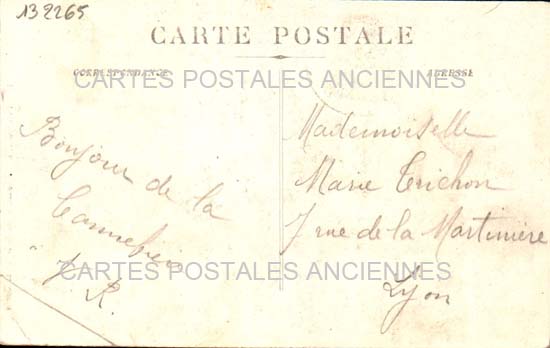 132265
CARTE POSTALE
CORRESPONDANCE
ADRESSE
CARTES POSTALES ANCIENNES
Bonjour de la
Cannebière
J. R.
Mademoiselle
Marie Trichon
7 rue de la Martinière
Lyon
CARTES POSTALES ANCIENNES